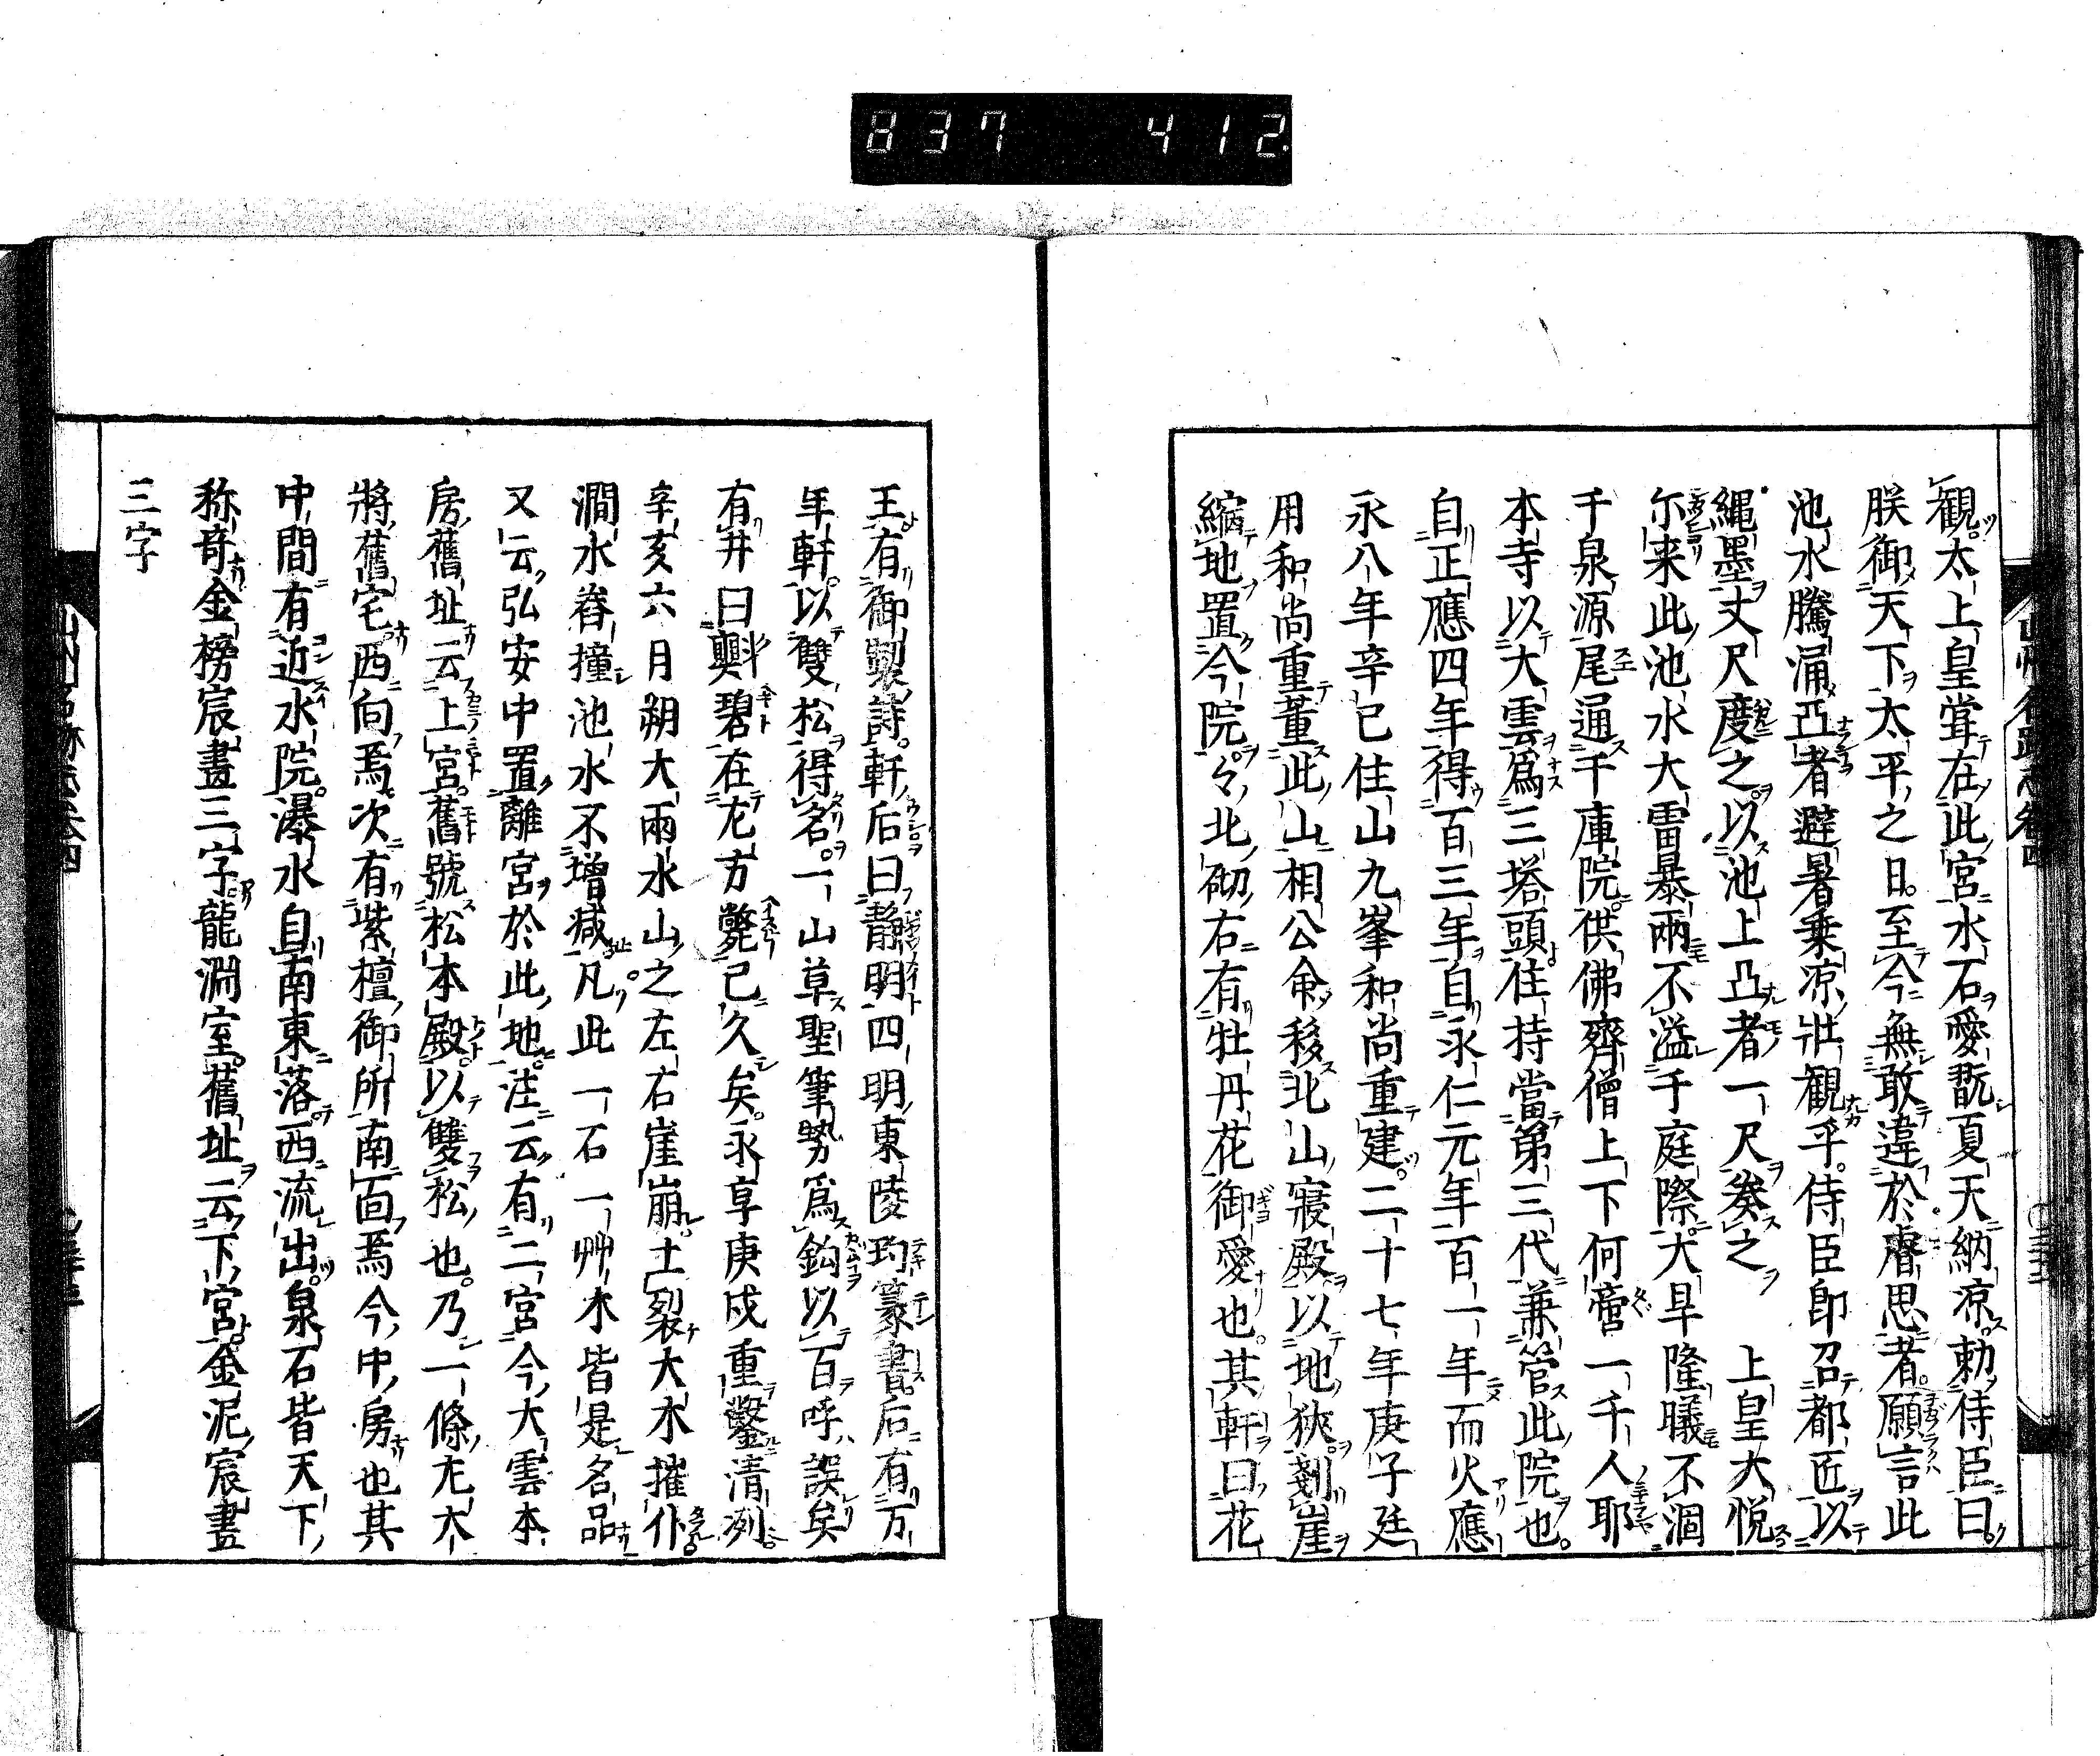 837 412
観太上皇甞在此宮水石愛翫夏天納凉勅侍臣曰
朕御天下太平之日至今無敢違於膚思者願言此
池水騰涌亞者避暑乗凉壯観乎侍臣即召都匠以
繩墨丈尺度之以池上凸者一尺矣之 上皇大悦
尓来此池水大雷暴雨不溢于庭際大旱隆曦不涸
千泉源尾通千庫院供佛齊僧上下何啻一千人耶
本寺以大雲為三塔頭住持當第三代兼管此院也
自正應四年得百三年自永仁元年百一年而火應
永八年辛已住山九峯和尚重建二十七年庚子廷
用和尚重董此山相公命移北山寝殿以地狹剗崖
縮地置今院々北砌右有牡丹花御愛也其軒曰花
王有御製詩軒后曰静明四明東陵玓篆書后有万
年軒以雙松得名一山草聖筆勢爲鈎以百呼誤矣
有井曰㪺碧在尨方斃已久矣永享庚戌重鑿清冽
辛亥六月朔大雨水山之左右崖崩土裂大木摧仆
澗水舂撞池水不増减凡此一石一艸木皆是名品
又云弘安中置離宮於此地注云有二宮今大雲本
房舊址云上宮舊號松本殿以雙松也乃一條尤大
將舊宅西向焉次有紫檀御所南面焉今中房也其
中間有近水院瀑水自南東落西流出泉石皆天下
称竒金榜宸畫三字龍淵室舊址云下宮金泥宸畫
三字